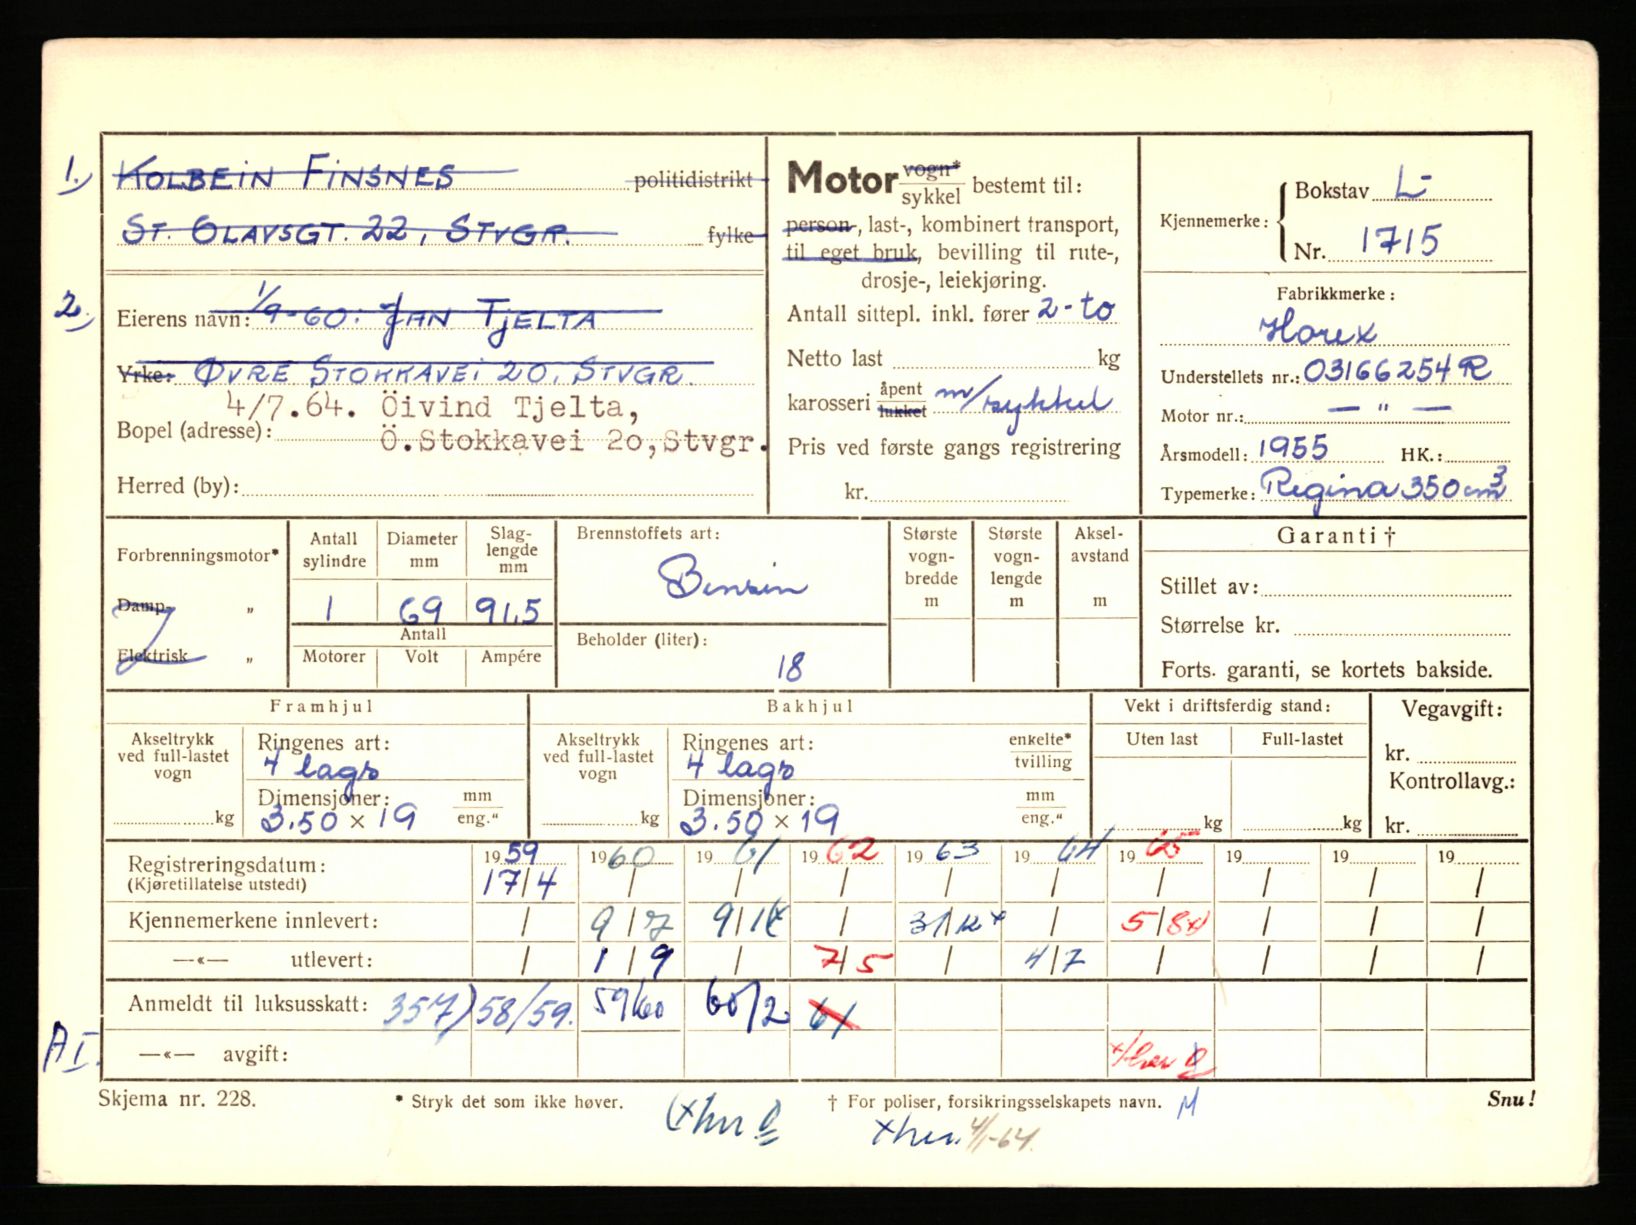 1.) KOLBEIN FINSNES politidistrikt
ST. OLAVSGT. 22, STVGR. fylke
2.) Eierens navn: 1/9-60: JAN TJELTA
Yrke: ØVRE STOKKAVEI 20, STVGR.
4/7.64. Öivind Tjelta,
Bopel (adresse): Ö.Stokkavei 20,Stvgr.
Herred (by):
Motor vogn* / sykkel bestemt til:
person-, last-, kombinert transport,
til eget bruk, bevilling til rute-,
drosje-, leiekjøring.
Antall sittepl. inkl. fører 2-to
Netto last kg
karosseri åpent / lukket m/sykkel
Pris ved første gangs registrering
kr.
Kjennemerke: Bokstav L-
Nr. 1715
Fabrikkmerke:
Horex
Understellets nr.: 03166254R
Motor nr.: — " —
Årsmodell: 1955 HK.:
Typemerke: Regina 350 cm3
Forbrenningsmotor*
Damp- "
Elektrisk "
Antall sylindre Diameter mm Slag-lengde mm
1 69 91,5
Antall
Motorer Volt Ampére
Brennstoffets art:
Bensin
Beholder (liter):
18
Største vogn-bredde m
Største vogn-lengde m
Aksel-avstand m
Garanti †
Stillet av:
Størrelse kr.
Forts. garanti, se kortets bakside.
Framhjul
Akseltrykk ved full-lastet vogn
kg
Ringenes art:
4 lags
Dimensjoner: mm
3.50 × 19 eng."
Bakhjul
Akseltrykk ved full-lastet vogn
kg
Ringenes art: enkelte*
4 lags tvilling
Dimensjoner: mm
3.50 × 19 eng."
Vekt i driftsferdig stand:
Uten last Full-lastet
kg kg
Vegavgift:
kr.
Kontrollavg.:
kr.
Registreringsdatum: 1959 1960 1961 1962 1963 1964 1965 19 19 19
(Kjøretillatelse utstedt) 17/4 / / / / / / / / /
Kjennemerkene innlevert: / 9/7 9/1x / 31/12x / 5/8x) / / /
—«— utlevert: / 1/9 / 7/5 / 4/7 / / / /
Anmeldt til luksusskatt: 357) 58/59. 59/60 60/2 61
AI. —«— avgift: x/her
Skjema nr. 228. * Stryk det som ikke høver. † For poliser, forsikringsselskapets navn. M Snu!
(xher
xher. 4/1-64.